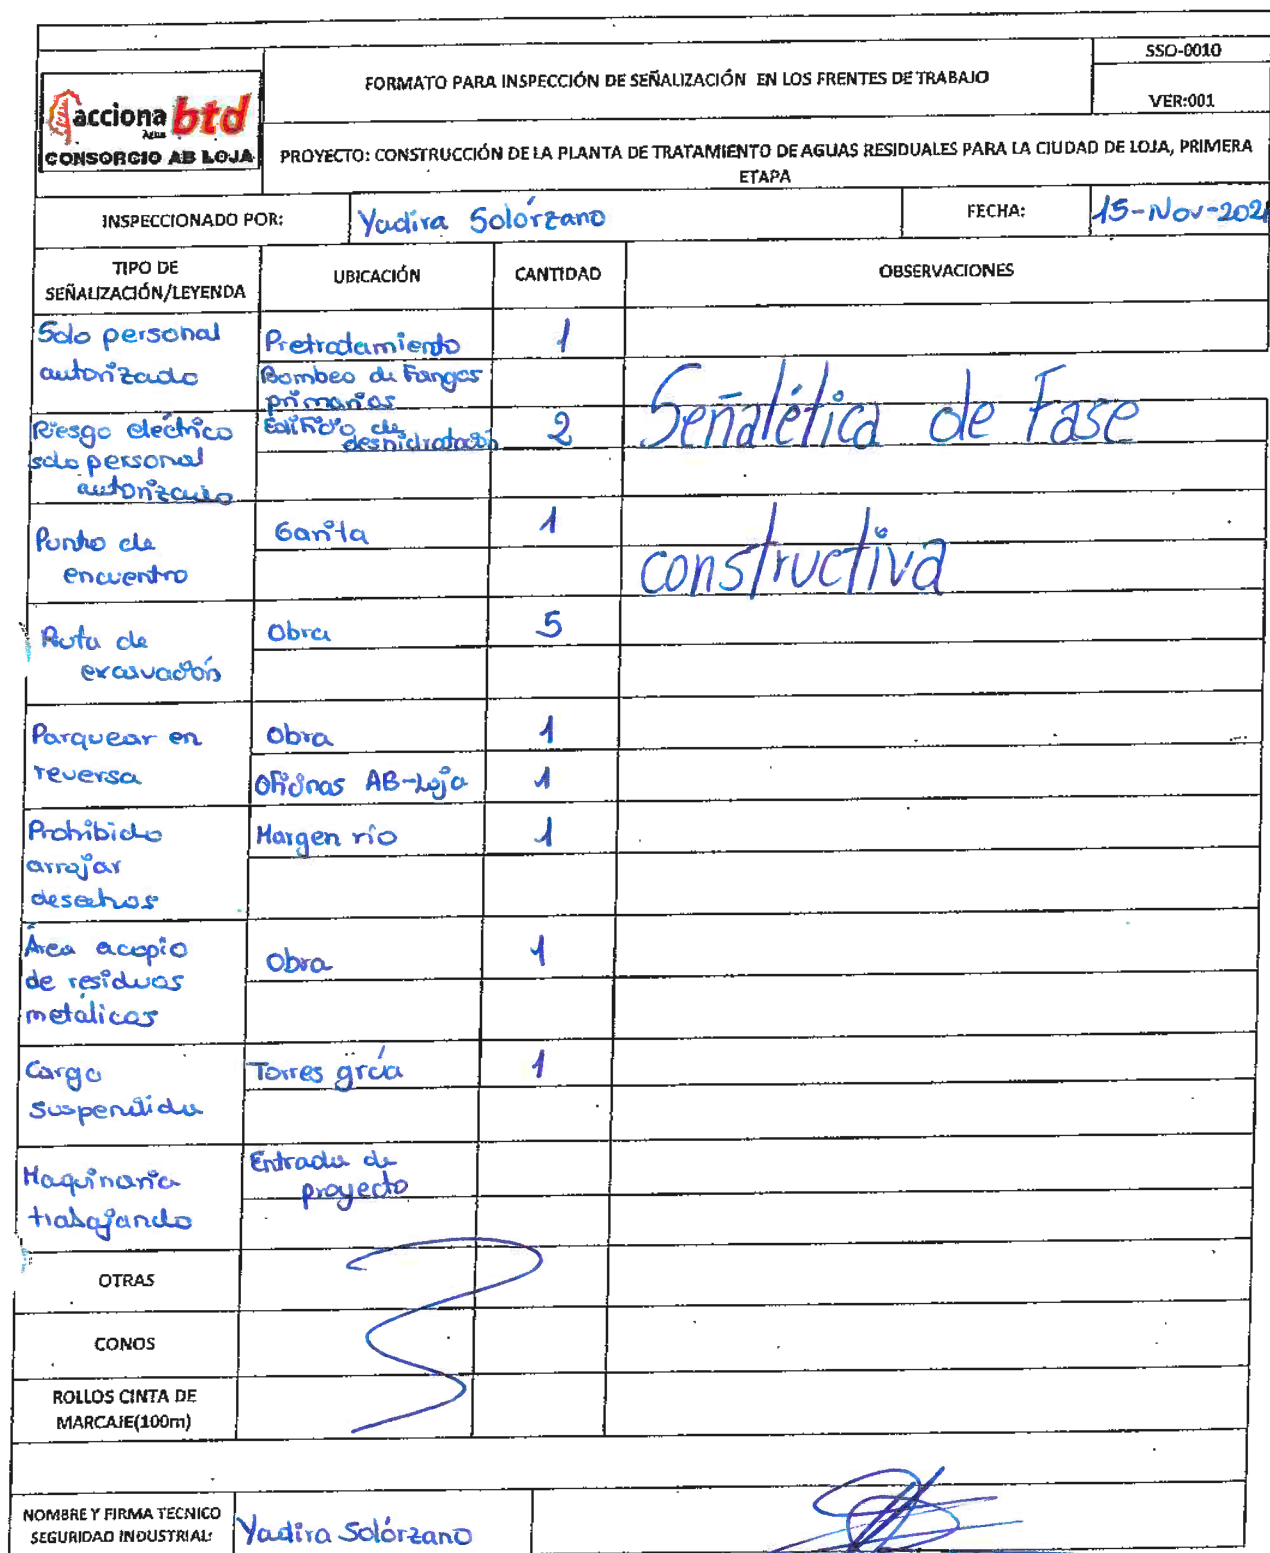 SSO-0010
FORMATO PARA INSPECCIÓN DE SEÑALIZACIÓN EN LOS FRENTES DE TRABAJO
VER:001
acciona btd
Agua
CONSORCIO AB LOJA
PROYECTO: CONSTRUCCIÓN DE LA PLANTA DE TRATAMIENTO DE AGUAS RESIDUALES PARA LA CIUDAD DE LOJA, PRIMERA
ETAPA
INSPECCIONADO POR: Yadira Solórzano FECHA: 15-Nov-2021
TIPO DE
SEÑALIZACIÓN/LEYENDA UBICACIÓN CANTIDAD OBSERVACIONES
Solo personal
autorizado
Pretratamiento 1
Bombeo de Fangos
primarios
Señalética de Fase
Riesgo eléctrico
solo personal
autorizado
Edificio de
deshidratación 2
Punto de
encuentro
Garita 1
constructiva
Ruta de
evacuación
Obra 5
Parquear en
reversa
Obra 1
Oficinas AB-Loja 1
Prohibido
arrojar
desechos
Margen río 1
Área acopio
de residuos
metálicos
Obra 1
Carga
suspendida
Torres grúa 1
Maquinaria
trabajando
Entrada de
proyecto
OTRAS
CONOS
ROLLOS CINTA DE
MARCAJE(100m)
NOMBRE Y FIRMA TECNICO
SEGURIDAD INDUSTRIAL:
Yadira Solórzano